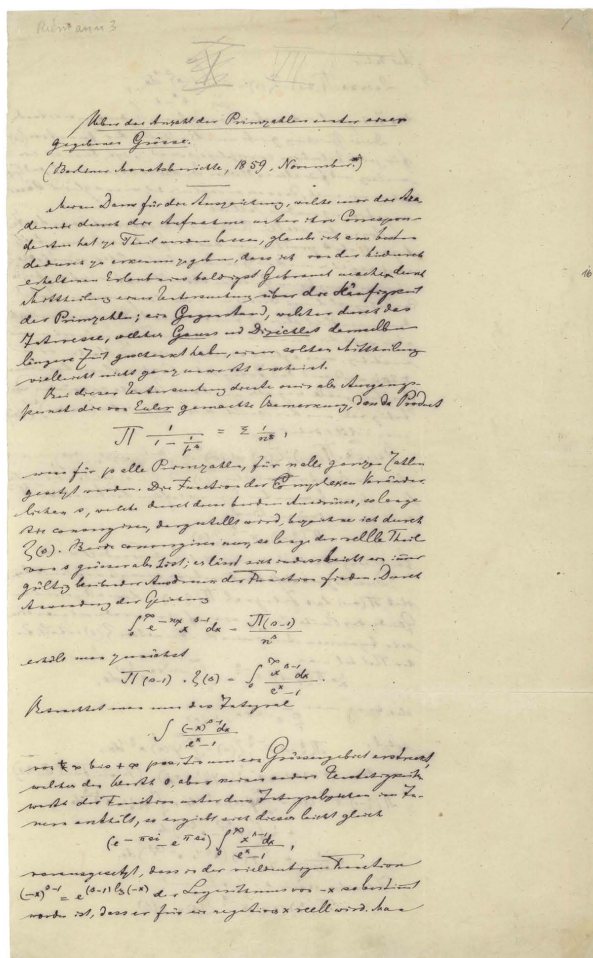 Riemann 3
1
Ueber die Anzahl der Primzahlen unter einer
gegebenen Grösse.
(Berliner Monatsberichte, 1859, November.)
Meinen Dank für die Auszeichnung, welche mir die Aka
demie durch die Aufnahme unter ihre Correspon
denten hat zu Theil werden lassen, glaube ich am besten
dadurch zu erkennen zu geben, dass ich von der hiedurch
erhaltenen Erlaubniss baldigst Gebrauch mache durch
Mittheilung einer Untersuchung über die Häufigkeit
der Primzahlen; ein Gegenstand, welcher durch das
Interesse, welches Gauss und Dirichlet demselben
längere Zeit geschenkt haben, einer solchen Mittheilung
vielleicht nicht ganz unwerth erscheint.
Bei dieser Untersuchung diente mir als Ausgangs-
punct die von Euler gemachte Bemerkung, dass das Product
∏ 1/(1 − 1/p^s) = Σ 1/n^s,
wenn für p alle Primzahlen, für n alle ganzen Zahlen
gesetzt werden. Die Function der complexen Veränder
lichen s, welche durch diese beiden Ausdrücke, so lange
sie convergiren, dargestellt wird, bezeichne ich durch
ζ(s). Beide convergiren nur, so lange der reelle Theil
von s grösser als 1 ist; es lässt sich indess leicht ein immer
gültig bleibender Ausdruck der Function finden. Durch
Anwendung der Gleichung
∫₀^∞ e^{−nx} x^{s−1} dx = Π(s−1)/n^s
erhält man zunächst
Π(s−1) . ζ(s) = ∫₀^∞ x^{s−1} dx/(e^x − 1).
Betrachtet man nun das Integral
∫ (−x)^{s−1} dx/(e^x − 1)
von + ∞ bis + ∞ positiv um ein Grössengebiet erstreckt,
welches den Werth 0, aber keinen andern Unstetigkeits
werth der Function unter dem Integralzeichen im In-
nern enthält, so ergiebt sich dieses leicht gleich
(e^{−πsi} − e^{πsi}) ∫₀^∞ x^{s−1} dx/(e^x − 1),
vorausgesetzt, dass in der vieldeutigen Function
(−x)^{s−1} = e^{(s−1) lg(−x)} der Logarithmus von −x so bestimmt
worden ist, dass er für ein negatives x reell wird. Man